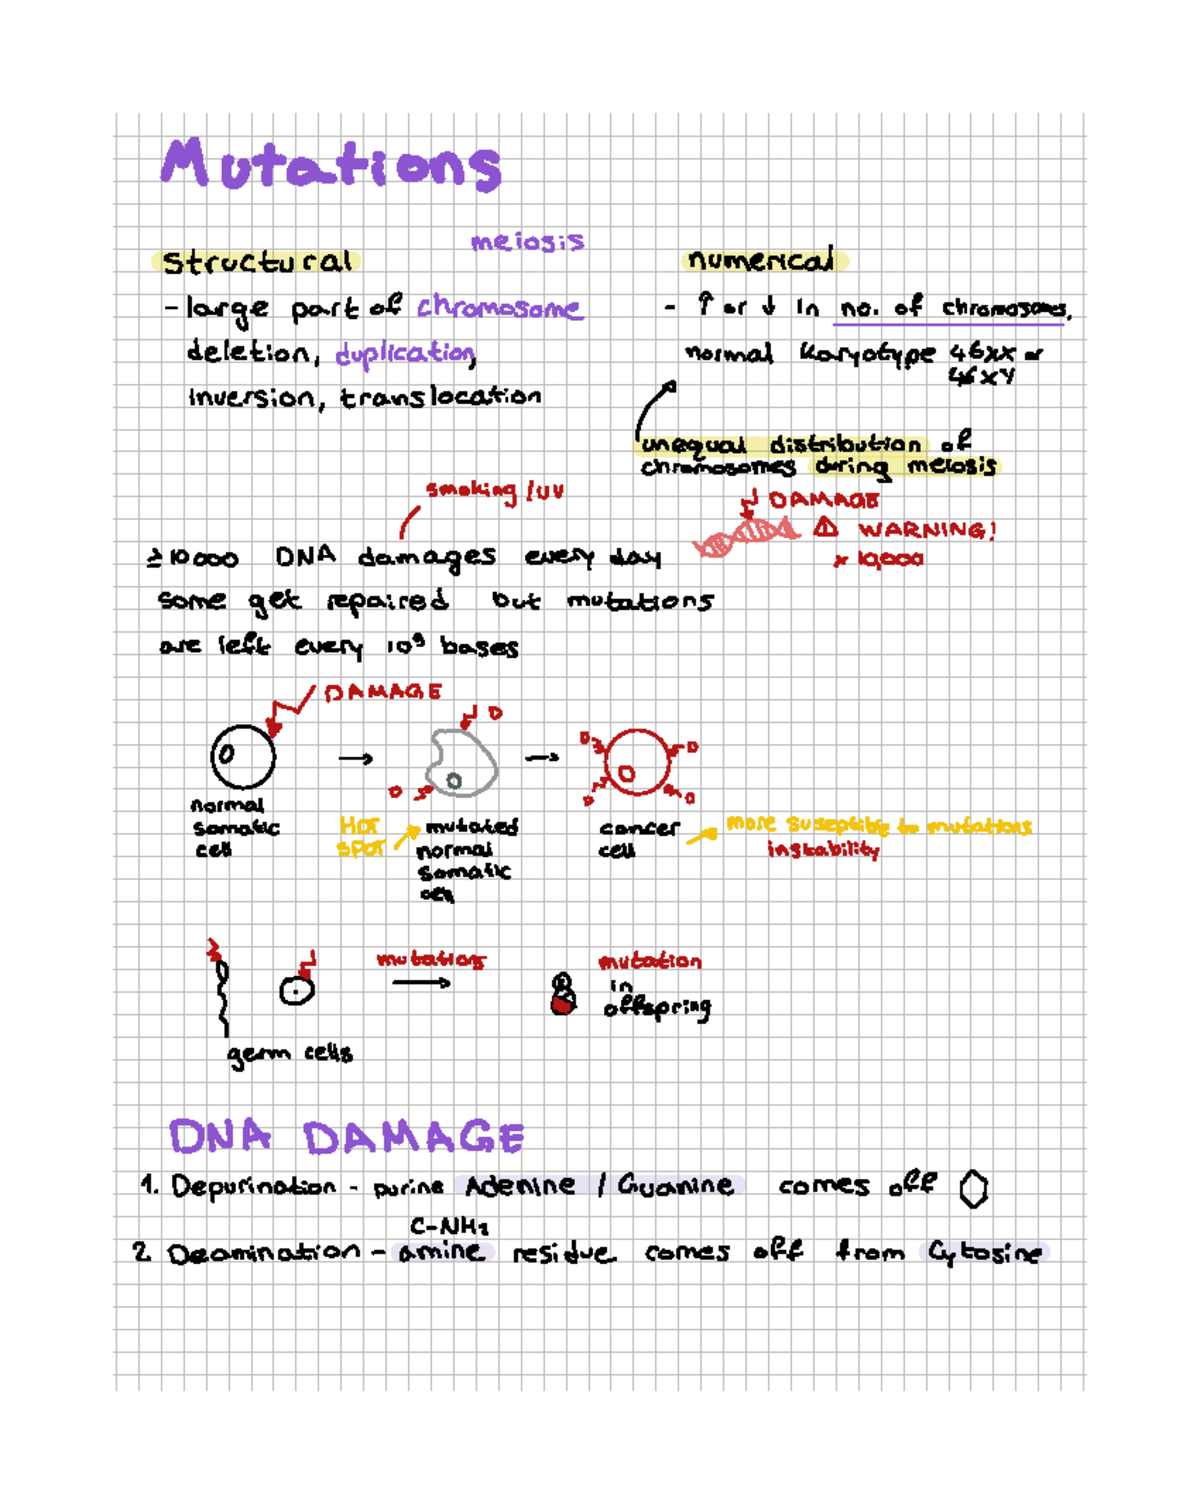 Mutations
meiosis
structural
- large part of chromosome
deletion, duplication,
inversion, translocation
numerical
- ↑ or ↓ in no. of chromosomes,
normal karyotype 46xx or
46xY
unequal distribution of
chromosomes during meiosis
smoking / uv
DAMAGE
⚠ WARNING!
x 10,000
≥ 10000 DNA damages every day
some get repaired but mutations
are left every 10⁹ bases
DAMAGE
D
D
D
D
D
D
normal
somatic
cell
HOT
SPOT
mutated
normal
somatic
cell
cancer
cell
more suseptible to mutations
instability
mutations
mutation
in
offspring
germ cells
DNA DAMAGE
1. Depurination - purine Adenine / Guanine comes off
C-NH₂
2. Deamination - amine residue comes off from Cytosine